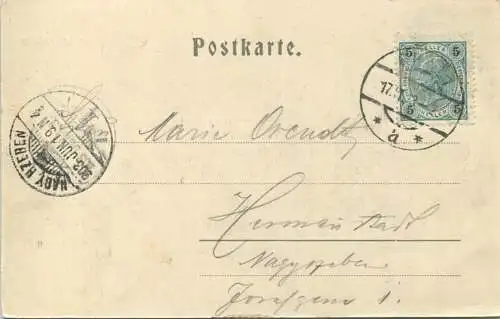 Postkarte.
5 5
5 5
17.
* a *
NAGY-SZEBEN
903 JUN. 19. N 4
Marie Orendt
Hermanstadt
Nagyszeben
Josefgasse 1.